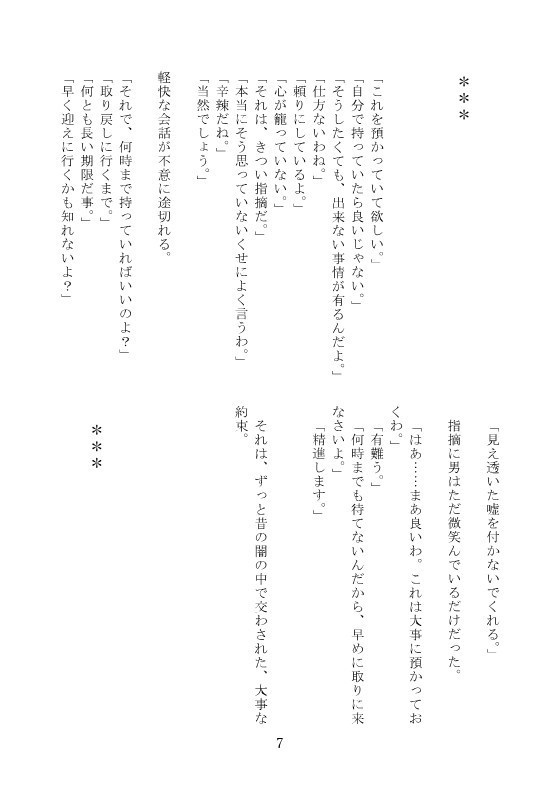 ***
「これを預かっていて欲しい。」
「自分で持っていたら良いじゃない。」
「そうしたくても、出来ない事情が有るんだよ。」
「仕方ないわね。」
「頼りにしているよ。」
「心が籠っていない。」
「それは、きつい指摘だ。」
「本当にそう思っていないくせによく言うわ。」
「辛辣だね。」
「当然でしょう。」
軽快な会話が不意に途切れる。
「それで、何時まで持っていればいいのよ？」
「取り戻しに行くまで。」
「何とも長い期限だ事。」
「早く迎えに行くかも知れないよ？」
「見え透いた嘘を付かないでくれる。」
指摘に男はただ微笑んでいるだけだった。
「はあ……まあ良いわ。これは大事に預かってお
くわ。」
「有難う。」
「何時までも待てないんだから、早めに取りに来
なさいよ。」
「精進します。」
それは、ずっと昔の闇の中で交わされた、大事な
約束。
***
7